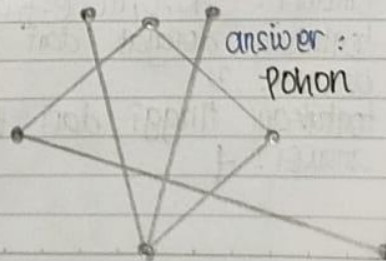 answer :
pohon